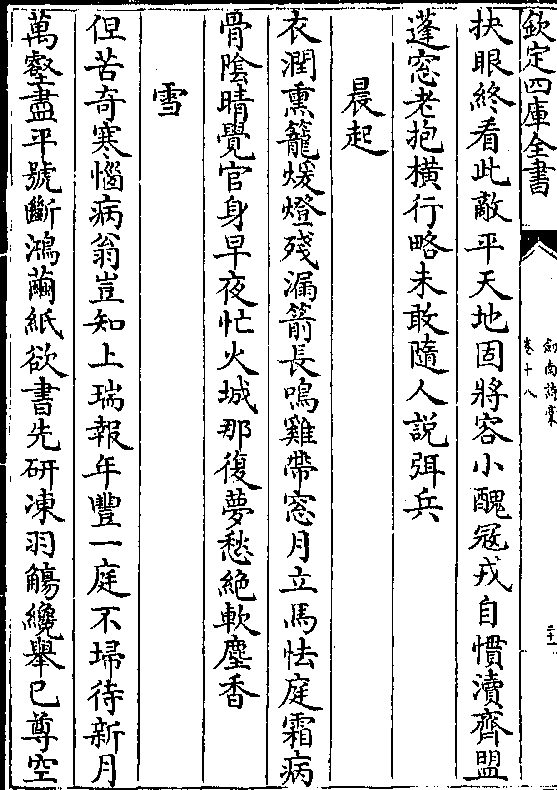 欽定四庫全書
劍南詩藁
卷十八
二十一
抉眼終看此敵平天地固將容小醜冠戎自慣瀆齊盟
蓬窓老抱横行略未敢隨人説弭兵
晨起
衣潤熏籠煖燈殘漏箭長鳴雞帶窓月立馬怯庭霜病
骨陰晴覺官身早夜忙火城那復夢愁絶軟塵香
雪
但苦奇寒惱病翁豈知上瑞報年豐一庭不埽待新月
萬壑盡平號斷鴻繭紙欲書先研凍羽觴纔舉已尊空